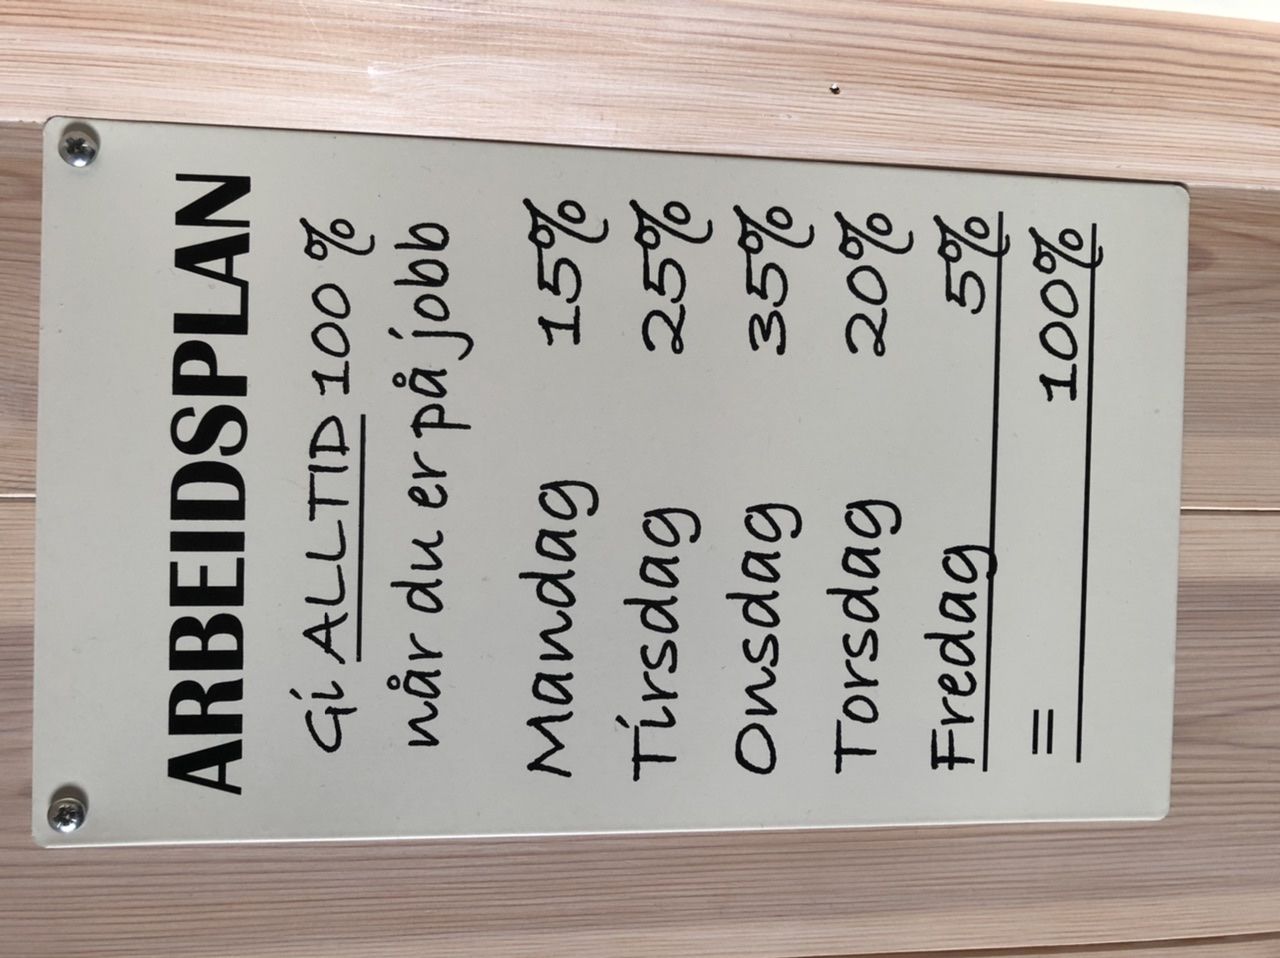 ARBEIDSPLAN
Gi ALLTID 100 %
når du er på jobb
Mandag 15%
Tirsdag 25%
Onsdag 35%
Torsdag 20%
Fredag 5%
= 100%